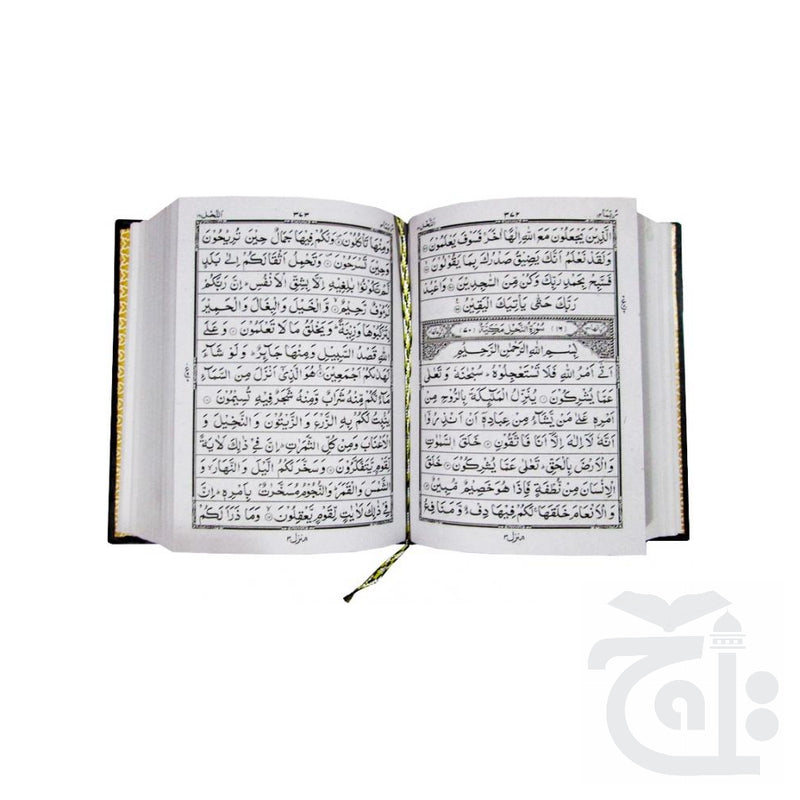 ٣٧٢
الَّذِيْنَ يَجْعَلُوْنَ مَعَ اللّٰهِ اِلٰهًا اٰخَرَ فَسَوْفَ يَعْلَمُوْنَ
وَلَقَدْ نَعْلَمُ اَنَّكَ يَضِيْقُ صَدْرُكَ بِمَا يَقُوْلُوْنَ
فَسَبِّحْ بِحَمْدِ رَبِّكَ وَكُنْ مِّنَ السّٰجِدِيْنَ وَاعْبُدْ
رَبَّكَ حَتّٰى يَاْتِيَكَ الْيَقِيْنُ
(١٦) سُوْرَةُ النَّحْلِ مَكِّيَّةٌ (٧٠)
بِسْمِ اللّٰهِ الرَّحْمٰنِ الرَّحِيْمِ
اَتٰۤى اَمْرُ اللّٰهِ فَلَا تَسْتَعْجِلُوْهُ سُبْحٰنَهٗ وَتَعٰلٰى
عَمَّا يُشْرِكُوْنَ يُنَزِّلُ الْمَلٰٓئِكَةَ بِالرُّوْحِ مِنْ
اَمْرِهٖ عَلٰى مَنْ يَّشَآءُ مِنْ عِبَادِهٖۤ اَنْ اَنْذِرُوْۤا
اَنَّهٗ لَاۤ اِلٰهَ اِلَّاۤ اَنَا فَاتَّقُوْنِ خَلَقَ السَّمٰوٰتِ
وَالْاَرْضَ بِالْحَقِّ تَعٰلٰى عَمَّا يُشْرِكُوْنَ خَلَقَ
الْاِنْسَانَ مِنْ نُّطْفَةٍ فَاِذَا هُوَ خَصِيْمٌ مُّبِيْنٌ
وَالْاَنْعَامَ خَلَقَهَا لَكُمْ فِيْهَا دِفْءٌ وَّمَنَافِعُ
منزل ٣
النحل
٣٧٣
وَمِنْهَا تَاْكُلُوْنَ وَلَكُمْ فِيْهَا جَمَالٌ حِيْنَ تُرِيْحُوْنَ
وَحِيْنَ تَسْرَحُوْنَ وَتَحْمِلُ اَثْقَالَكُمْ اِلٰى بَلَدٍ
لَّمْ تَكُوْنُوْا بٰلِغِيْهِ اِلَّا بِشِقِّ الْاَنْفُسِ اِنَّ رَبَّكُمْ
لَرَءُوْفٌ رَّحِيْمٌ وَّالْخَيْلَ وَالْبِغَالَ وَالْحَمِيْرَ
لِتَرْكَبُوْهَا وَزِيْنَةً وَيَخْلُقُ مَا لَا تَعْلَمُوْنَ وَعَلَى
اللّٰهِ قَصْدُ السَّبِيْلِ وَمِنْهَا جَآئِرٌ وَلَوْ شَآءَ
لَهَدٰىكُمْ اَجْمَعِيْنَ هُوَ الَّذِيْۤ اَنْزَلَ مِنَ السَّمَآءِ
مَآءً لَّكُمْ مِّنْهُ شَرَابٌ وَّمِنْهُ شَجَرٌ فِيْهِ تُسِيْمُوْنَ
يُنْۢبِتُ لَكُمْ بِهِ الزَّرْعَ وَالزَّيْتُوْنَ وَالنَّخِيْلَ وَ
الْاَعْنَابَ وَمِنْ كُلِّ الثَّمَرٰتِ اِنَّ فِيْ ذٰلِكَ لَاٰيَةً
لِّقَوْمٍ يَّتَفَكَّرُوْنَ وَسَخَّرَ لَكُمُ الَّيْلَ وَالنَّهَارَ وَ
الشَّمْسَ وَالْقَمَرَ وَالنُّجُوْمُ مُسَخَّرٰتٌۢ بِاَمْرِهٖ اِنَّ
فِيْ ذٰلِكَ لَاٰيٰتٍ لِّقَوْمٍ يَّعْقِلُوْنَ وَمَا ذَرَاَ لَكُمْ
منزل ٣